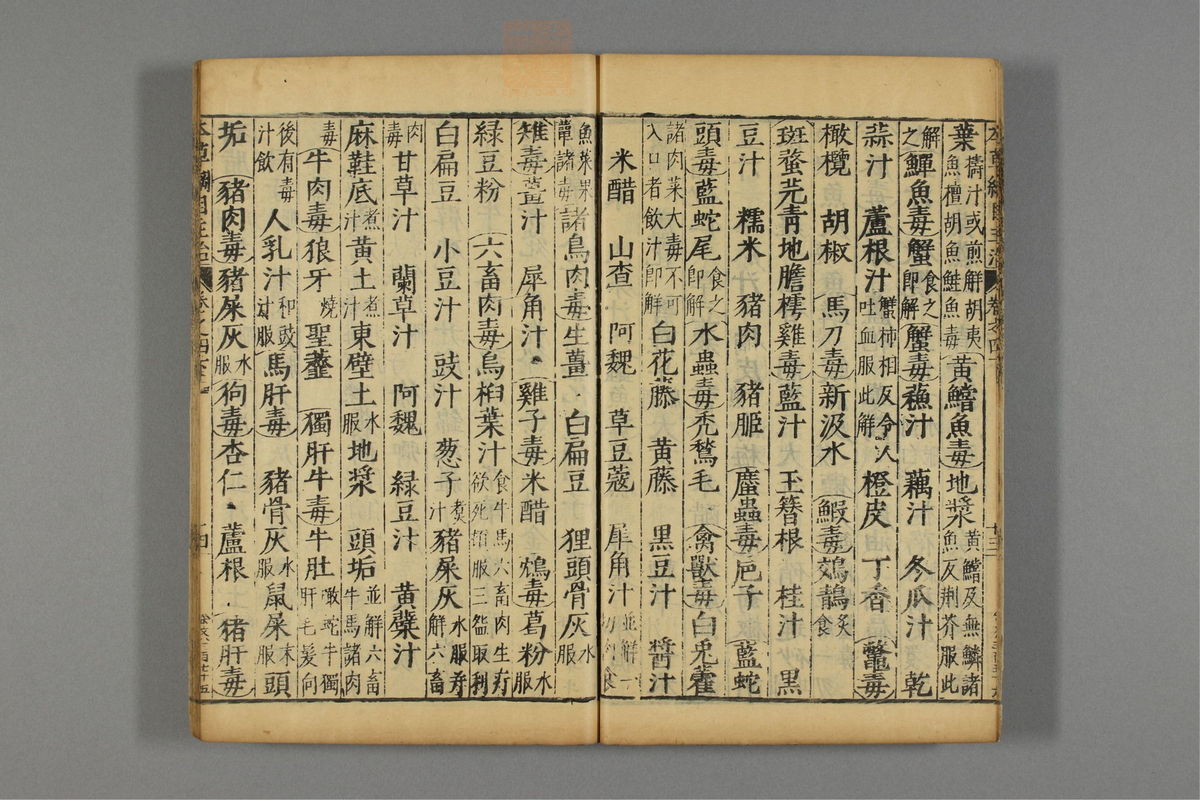 葉擣汁或煎解胡夷魚檀胡魚鮭魚毒黃鱨魚毒地漿黃鱨及無鱗諸魚反荆芥服此
解之鱓魚毒蟹食之即解蟹毒蘓汁 藕汁 冬瓜汁 乾
蒜汁 蘆根汁蟹柿相反令人吐血服此解橙皮 丁香 鼈毒
橄欖 胡椒 馬刀毒新汲水 鰕毒鵁鶄炙食
斑蝥芫青地膽樗雞毒藍汁 玉簪根 桂汁 黑
豆汁 糯米 豬肉 豬脏 䗪蟲毒巵子 藍蛇
頭毒藍蛇尾食之即解水蟲毒禿鶖毛 禽獸毒白兎藿
諸肉菜大毒不可入口者飲汁即解白花藤 黄藤 黒豆汁 醬汁
米醋 山查 阿魏 草豆蔻 犀角汁並解一
魚菜果蕈諸毒諸鳥肉毒生薑 白扁豆 狸頭骨灰水服
雉毒薑汁 犀角汁 雞子毒米醋 鴆毒葛粉水服
綠豆粉 六畜肉毒烏桕葉汁食牛馬六畜肉生疔欲死頓服三盌取利
白扁豆 小豆汁 豉汁 葱子煑汁豬屎灰水服并解六畜
肉毒甘草汁 蘭草汁 阿魏 緑豆汁 黄蘗汁
麻鞋底煮汁黄土煮汁東壁土水服地漿 頭垢並解六畜牛馬諸肉
毒牛肉毒狼牙燒聖虀 獨肝牛毒牛肚噉蛇牛獨肝毛髪向
後有毒汁飲人乳汁和豉汁服馬肝毒 豬骨灰水服鼠屎末服頭
垢 豬肉毒豬屎灰水服狗毒杏仁 蘆根 猪肝毒